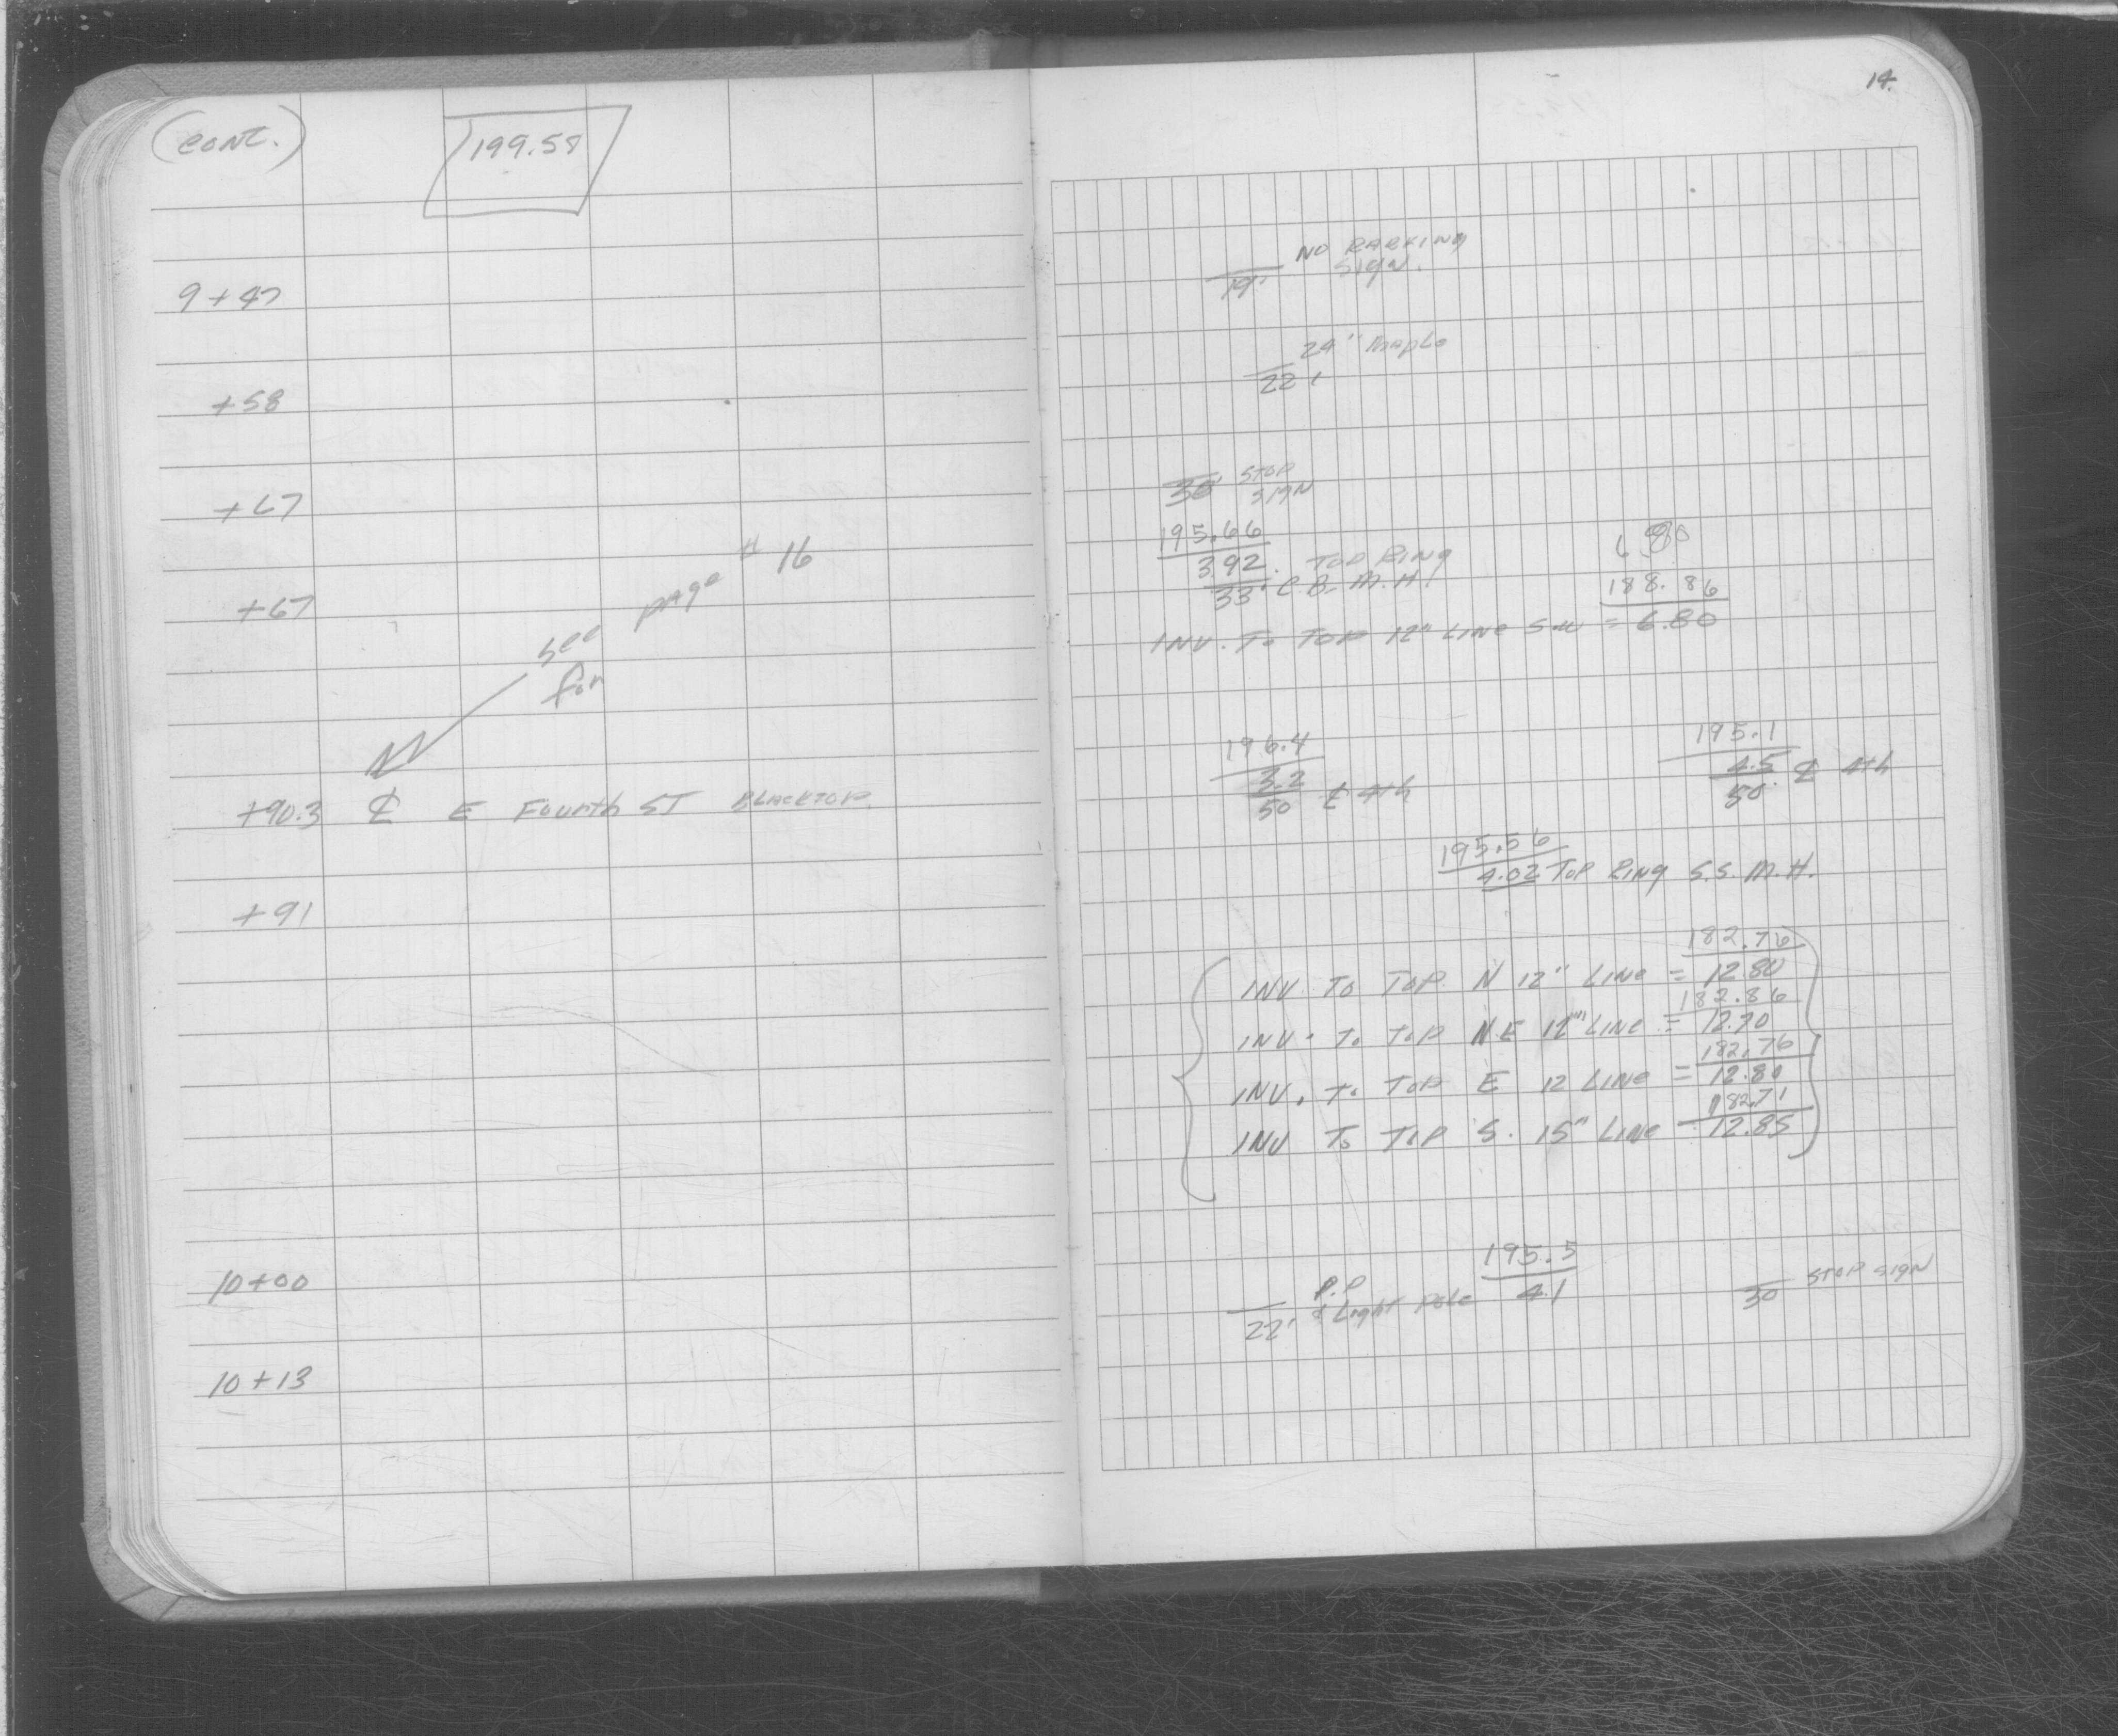 (CONT.)
199.58
9+47
+58
+67
+67
see page # 16
for
+90.3 ℄ E Fourth ST BLACKTOP
+91
10+00
10+13
14.
NO PARKING
SIGN.
19'
24" Maple
22'
30' STOP
SIGN
195.66
3.92 TOP RING
33' C.B. M.H.
188.86
INV. To TOP 12" LINE SW = 6.80
196.4
3.2
50 ℄ 4th
195.1
4.5
50 ℄ 4th
195.56
4.02 TOP RING S.S. M.H.
182.76
INV. TO TOP N 12" LINE = 12.80
182.86
INV. To TOP N.E 12" LINE = 12.70
182.76
INV. To TOP E 12 LINE = 12.80
182.71
INV To TOP S. 15" LINE = 12.85
195.5
4.1
P.P
& Light Pole
22'
STOP SIGN
30